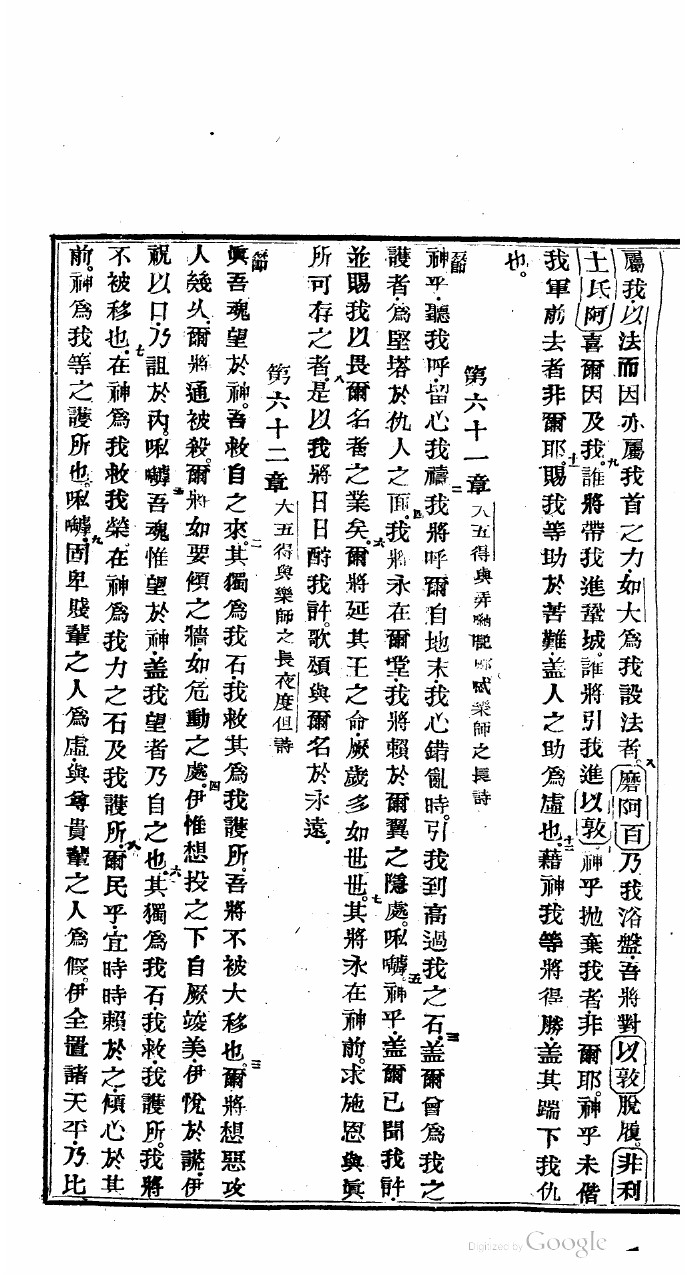 屬我以法而因亦屬我首之力如大為我設法者八磨阿百乃我浴盤吾將對以敦脫履。非利
士氏阿喜爾因及我。九誰將帶我進鞏城。誰將引我進以敦神乎拋棄我者非爾耶。神乎未偕
我軍前去者非爾耶。十一賜我等助於苦難。盖人之助為虛也。十二藉神我等將得勝盖其踹下我仇
也。
第六十一章 大五得與弄 之樂師之長詩
節神乎聽我呼留心我禱。二我將呼爾自地末我心錯亂時。引我到高過我之石。三盖爾曾為我之
護者為堅塔於仇人之面。四我將永在爾堂我將賴於爾翼之隱處。𠲿嚹。五神乎盖爾已聞我許。
並賜我以畏爾名者之業矣。六爾將延其王之命厥歲多如世世。七其將永在神前。求施恩與眞
所可存之者。八是以我將日日酧我許。歌頌與爾名於永遠。
第六十二章 大五得與樂師之長夜度但詩
節眞吾魂望於神。吾救自之來。二其獨為我石我救其為我護所。吾將不被大移也。三爾將想惡攻
人幾久。爾將通被殺。爾將如要傾之牆如危動之處。四伊惟想投之下自厥竣美伊悅於謊伊
祝以口乃詛於內。𠲿嚹。五吾魂惟望於神盖我望者乃自之也。六其獨為我石我救我護所。我將
不被移也。七在神為我救我榮。在神為我力之石及我護所。八爾民乎宜時時賴於之傾心於其
前。神為我等之護所也。𠲿嚹。九固卑賤輩之人為虛與尊貴輩之人為假。伊全置諸天平乃比
Digitized by Google